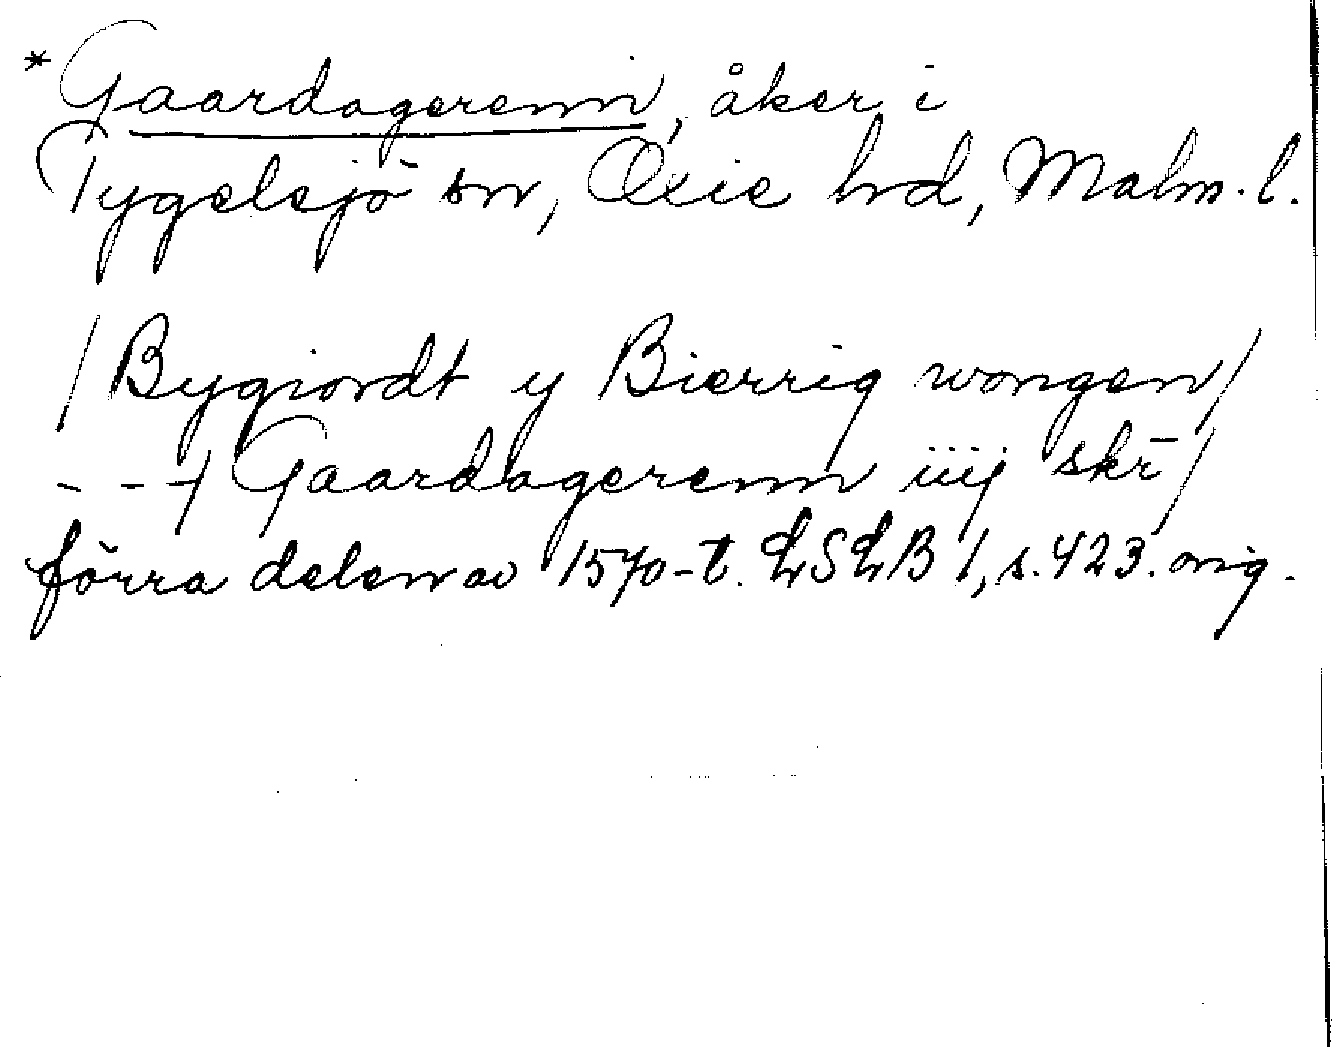 *Gaardagerenn, åker i
Tygelsjö sn, Oxie hd, Malm. l.
/Bygiordt y Bierrig wongen/
- - / Gaardagerenn iiij skr̄/
förra delen av 1570-t. LSLB 1, s. 423. orig.